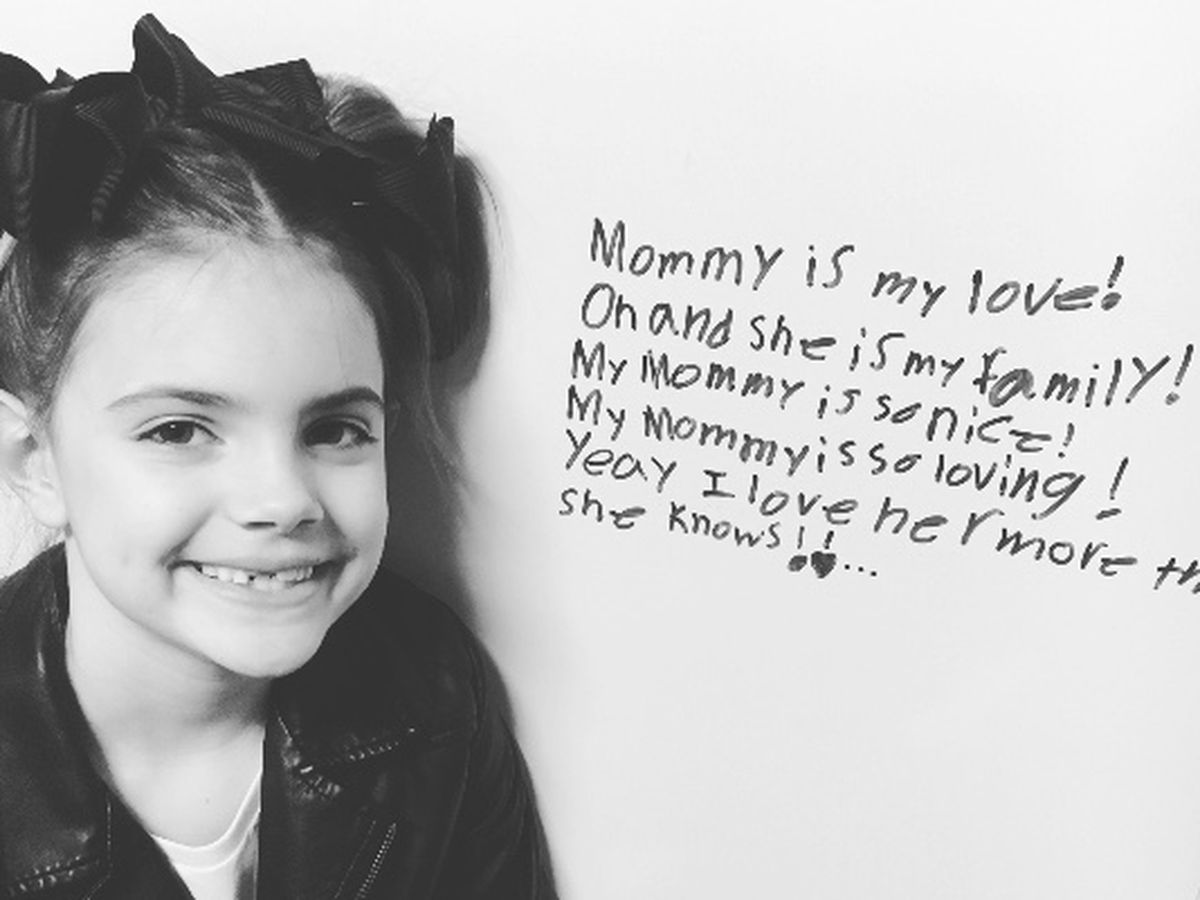 Mommy is my love!
Oh and she is my family!
My Mommy is so nice!
My Mommy is so loving!
Yeay I love her more th
she knows!!♥...